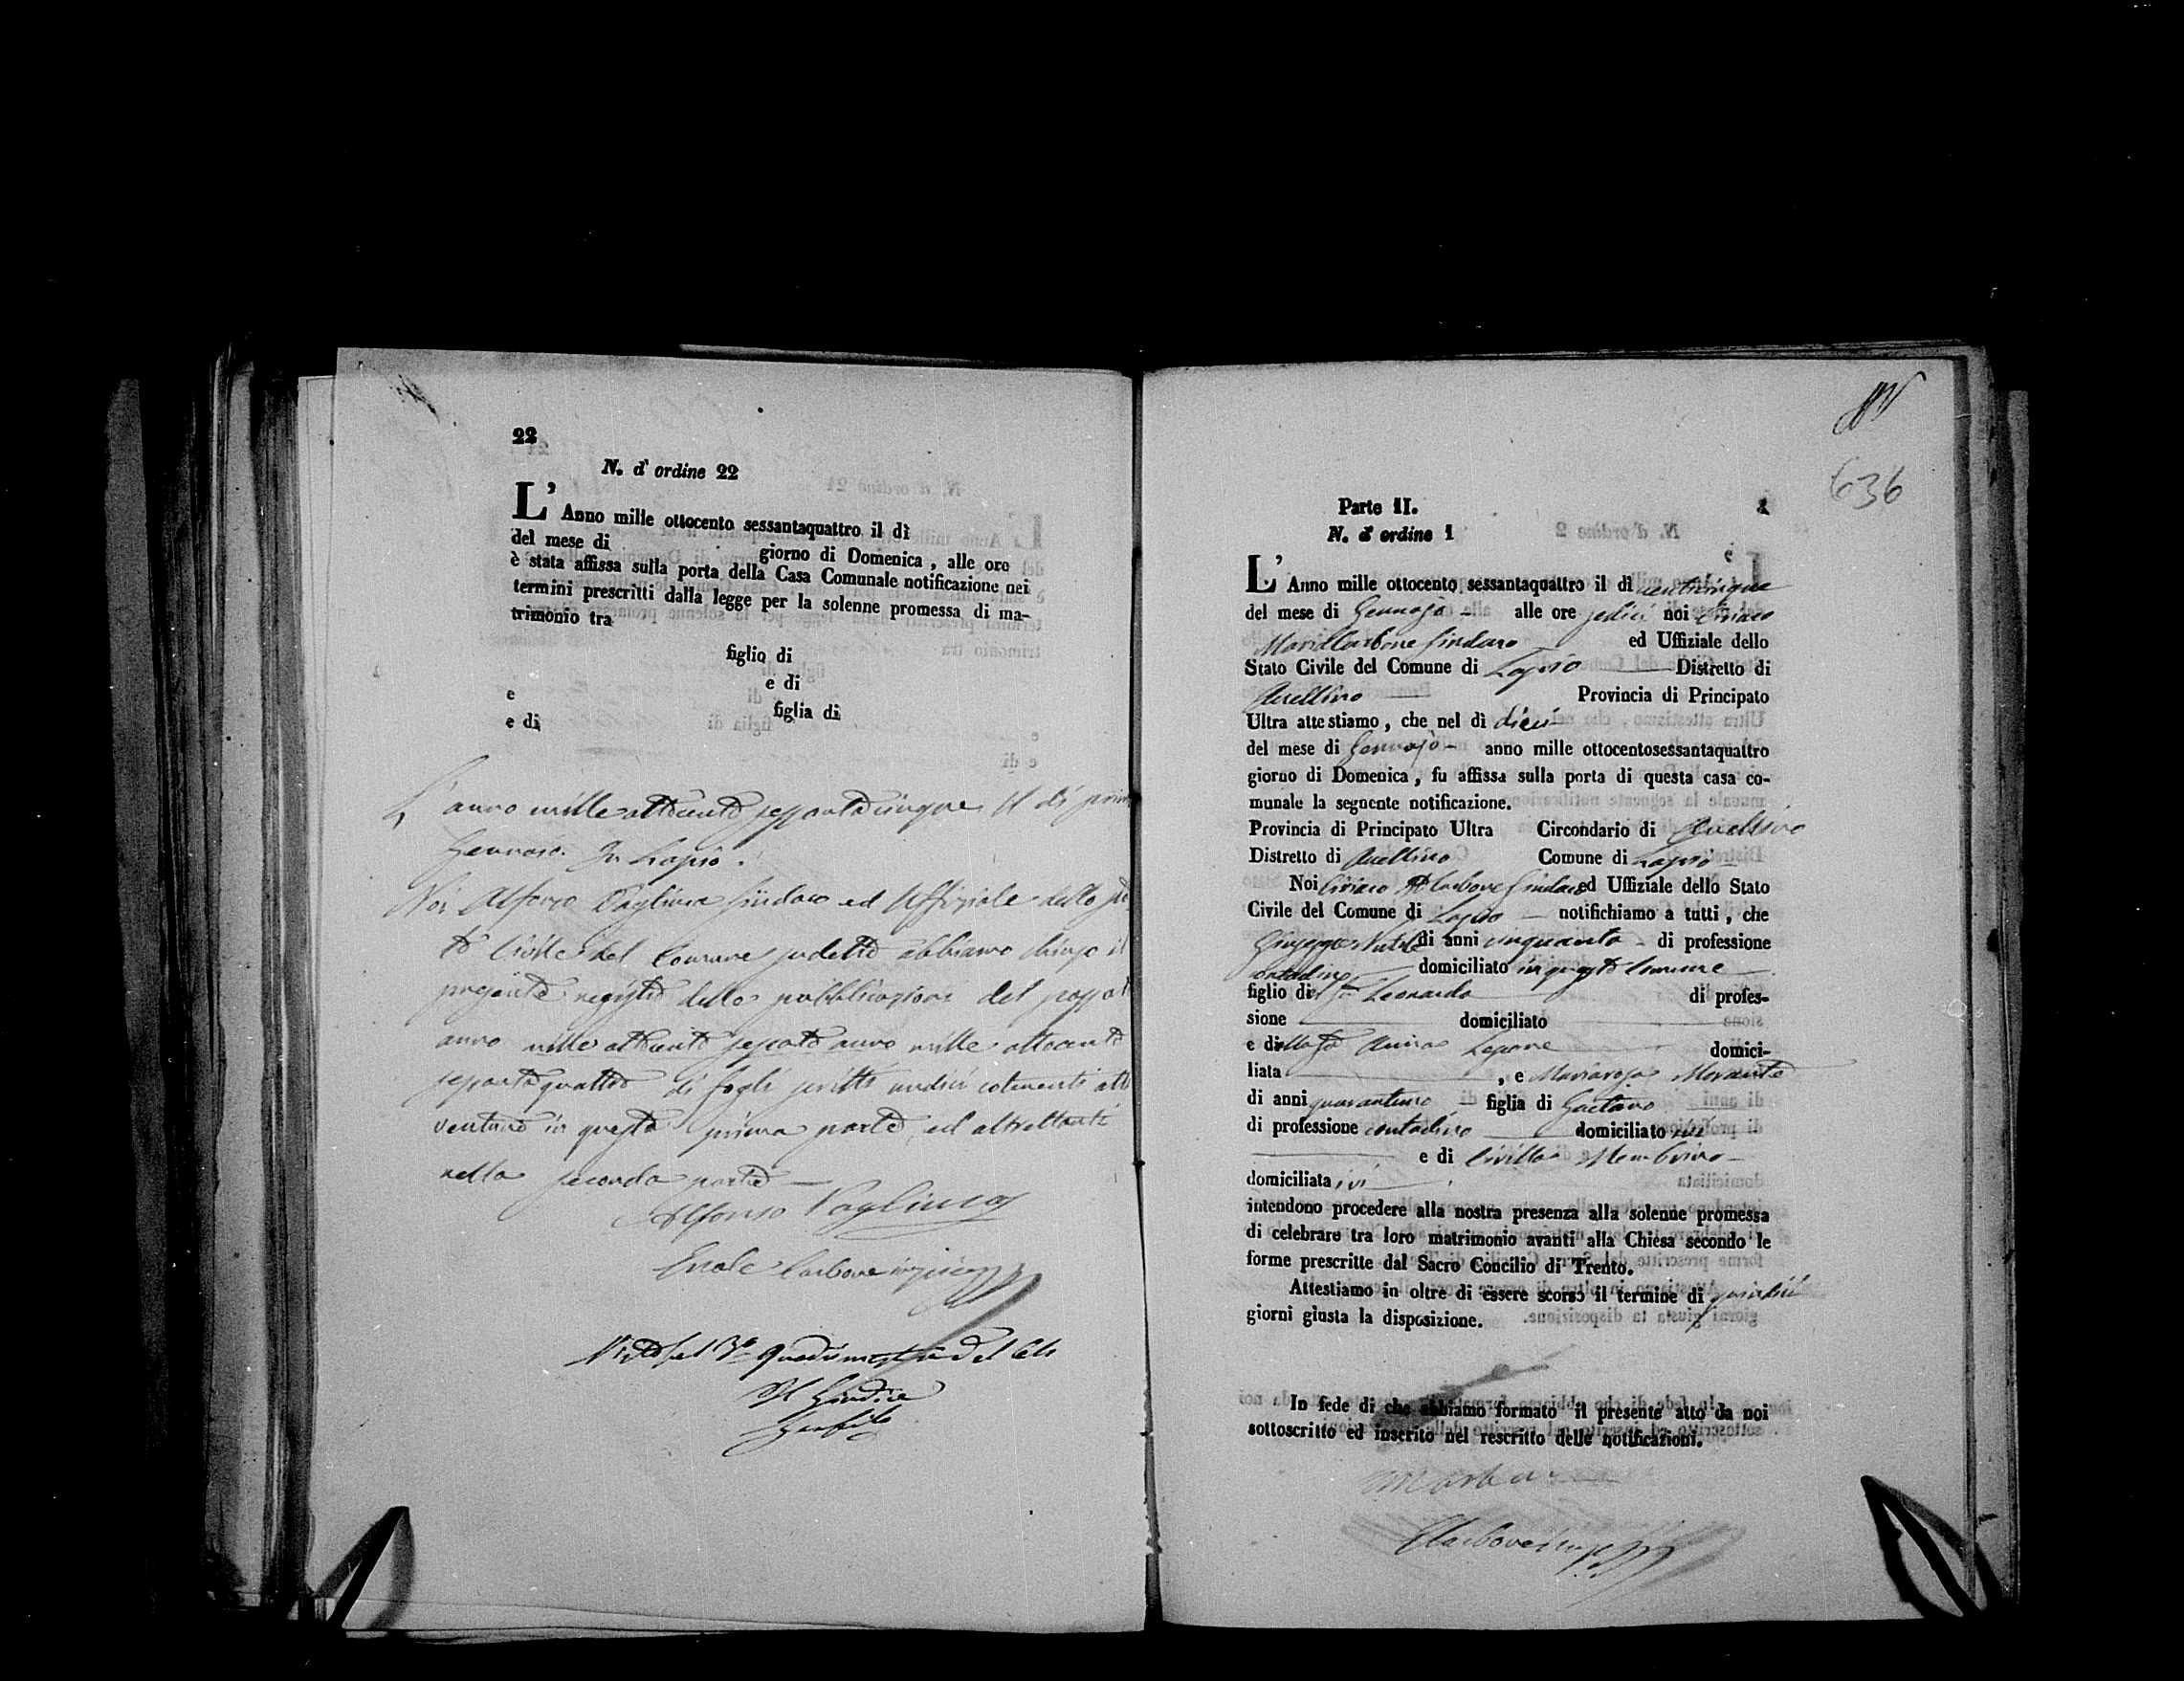 22
N. d' ordine 22
L' Anno mille ottocento sessantaquattro il dì
del mese di giorno di Domenica , alle ore
è stata affissa sulla porta della Casa Comunale notificazione nei
termini prescritti dalla legge per la solenne promessa di ma-
trimonio tra
figlio di
e di
e figlia di
e di
L'anno mille ottocento sessantacinque il dì primo
Gennaio. In Lapio.
Noi Alfonso Pagliuca Sindaco ed Uffiziale dello Sta
to Civile del Comune sudetto abbiamo chiuso il
presente registro delle pubblicazioni del passato
anno mille ottocento sessanta anno mille ottocento
sessantaquattro di fogli scritti undici contenenti atti
ventuno in questa prima parte ed altrettanti
nella seconda parte
Alfonso Pagliuca
Carbone
Il Giudice
636
Parte II. 1
N. d' ordine 1
L' Anno mille ottocento sessantaquattro il dì venticinque
del mese di Gennajo alle ore sedici noi Ciriaco
Maria Carbone Sindaco ed Uffiziale dello
Stato Civile del Comune di Lapio Distretto di
Avellino Provincia di Principato
Ultra attestiamo , che nel dì dieci
del mese di Gennajo anno mille ottocentosessantaquattro
giorno di Domenica , fu affissa sulla porta di questa casa co-
munale la seguente notificazione.
Provincia di Principato Ultra Circondario di Avellino
Distretto di Avellino Comune di Lapio
Noi Ciriaco M Carbone Sindaco ed Uffiziale dello Stato
Civile del Comune di Lapio notifichiamo a tutti , che
Giuseppe Nutile di anni cinquanta di professione
contadino domiciliato in questo Comune
figlio del fu Leonardo di profes-
sione domiciliato
e della fu Anna Lepore domici-
liata , e Mariarosa Morante
di anni quarantuno figlia di Gaetano
di professione contadino domiciliato ivi
e di Civilla Membrino
domiciliata ivi
intendono procedere alla nostra presenza alla solenne promessa
di celebrare tra loro matrimonio avanti alla Chiesa secondo le
forme prescritte dal Sacro Concilio di Trento.
Attestiamo in oltre di essere scorso il termine di quindici
giorni giusta la disposizione.
In fede di che abbiamo formato il presente atto da noi
sottoscritto ed inserito nel rescritto delle notificazioni.